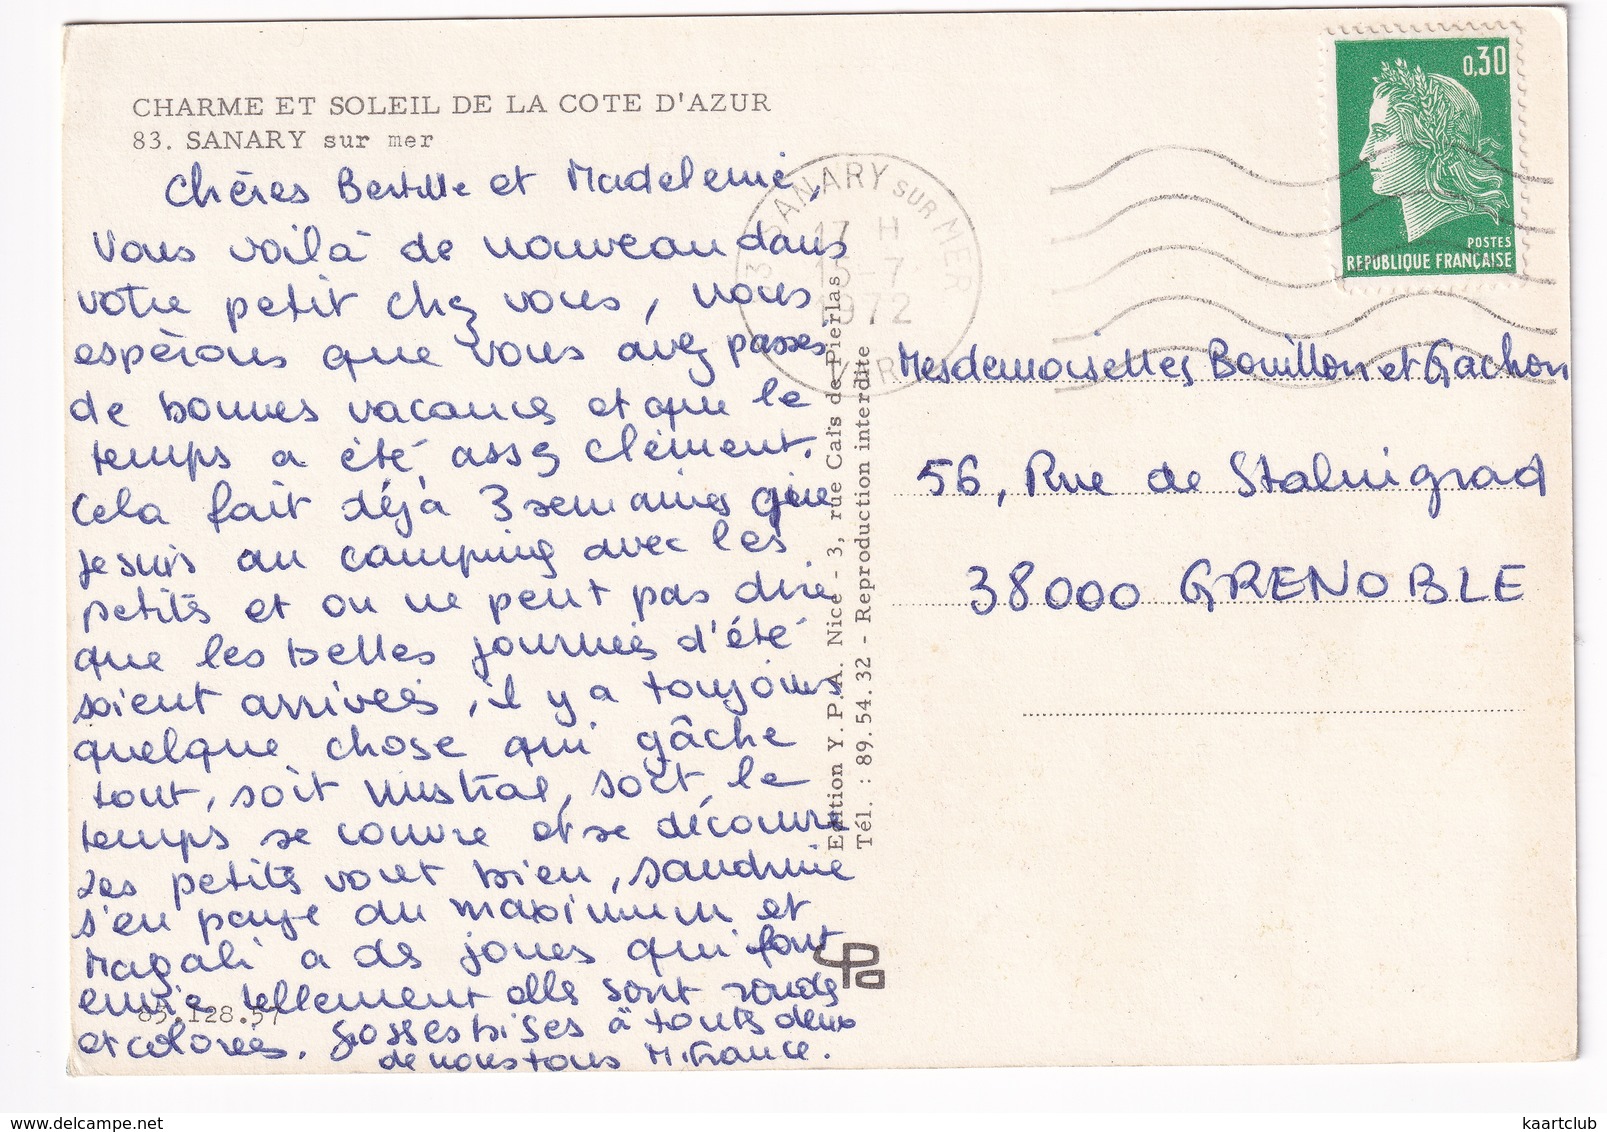 CHARME ET SOLEIL DE LA COTE D'AZUR
83. SANARY sur mer
Chères Bertille et Madeleine,
Vous voilà de nouveau dans
votre petit chez vous, nous
espérons que vous avez passés
de bonnes vacances et que le
temps a été assez clément.
Cela fait déjà 3 semaines que
je suis au camping avec les
petits et on ne peut pas dire
que les belles journées d'été
soient arrivées, il y a toujours
quelque chose qui gâche
tout, soit mistral, soit le
temps se couvre et se découvre
Les petits vont bien, Sandrine
s'en paye au maximum et
Magali a des joues qui font
envie tellement elles sont rondes
et colorées. Grosses bises à toutes deux
de nous tous M. France.
83.128.57
83 SANARY SUR MER
17 H
15-7
1972
VAR
0,30
POSTES
REPUBLIQUE FRANÇAISE
Edition Y. P. A. Nice - 3, rue Caïs de Pierlas
Tél. : 89.54.32 - Reproduction interdite
ypa
Mesdemoiselles Bouillon et Gachon
56, Rue de Stalingrad
38000 GRENOBLE
www.delcampe.net
kaartclub